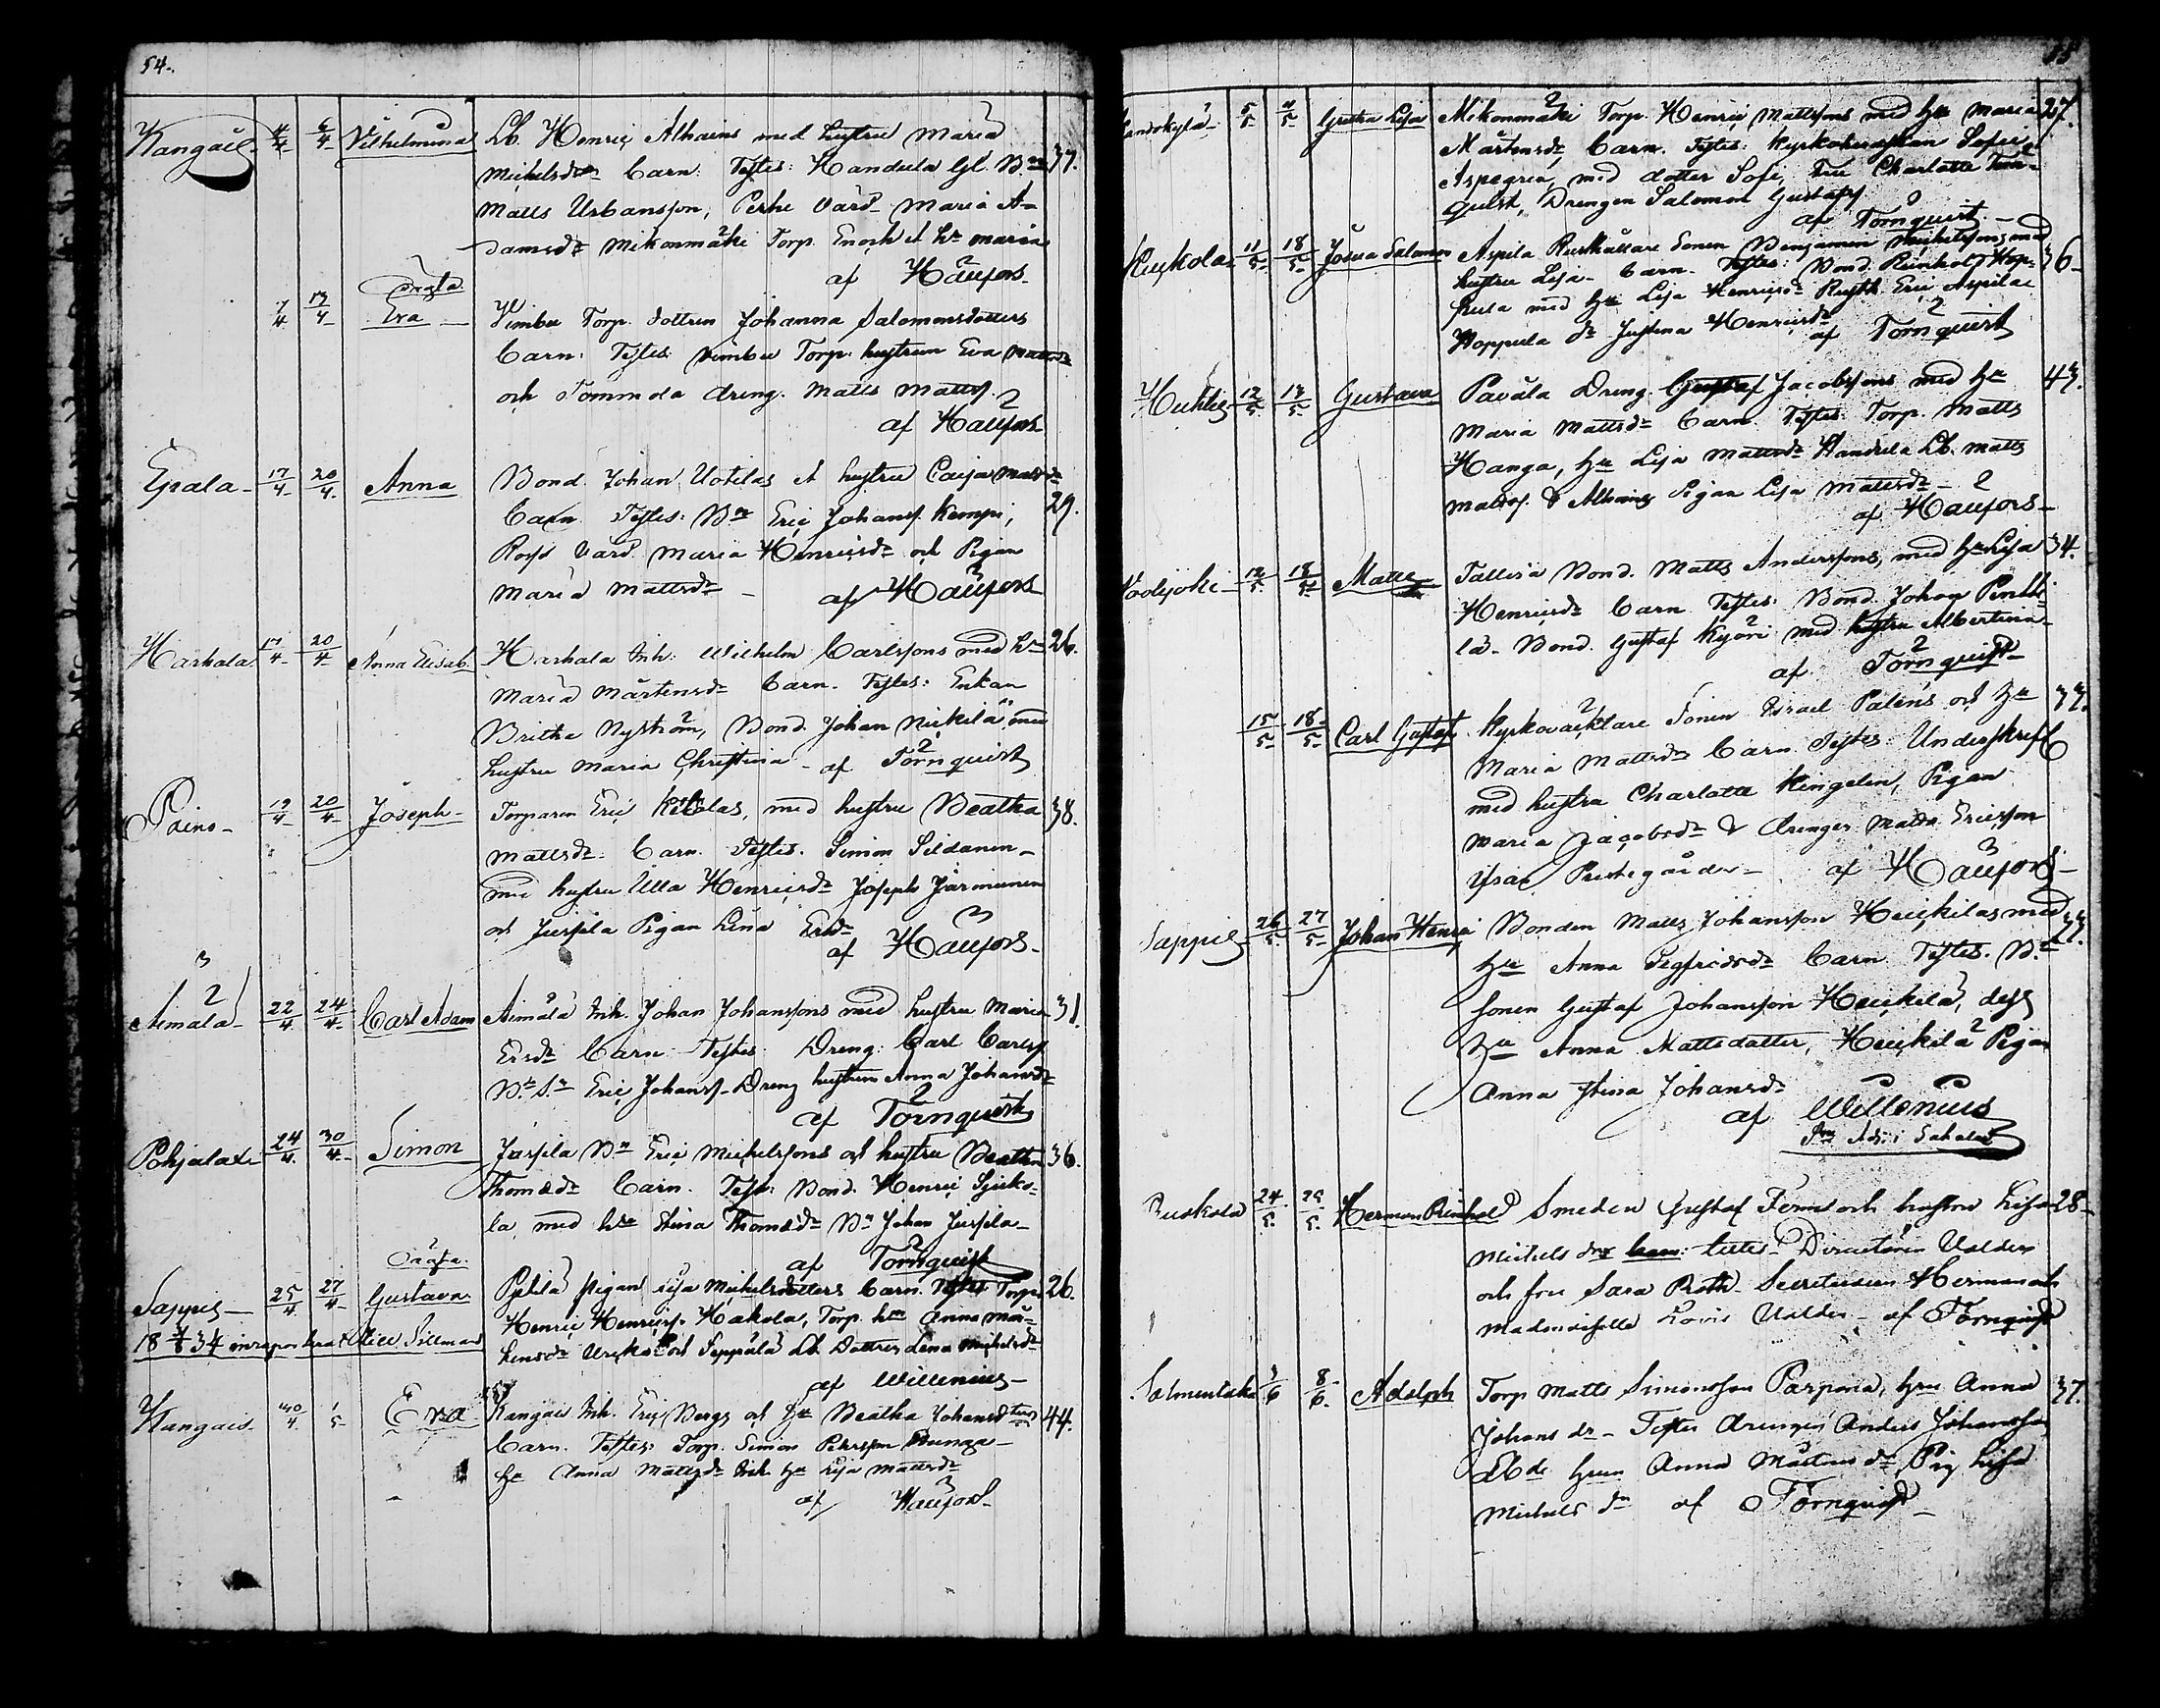 54.
Kangais 4/4 6/4 Vilhelmina Lb. Henric Alhains med hustru Maria
Michelsdr Barn: Testes: Handula Gl. Bm 37.
Matts Urbansson, Perhe Värd Maria A-
damsdr Mikonmäki Torp. Enoch et hu Maria
af Haufors
7/4 13/4 oägta Eva Vimbu Torp. dottren Johanna Salomonsdotters
Barn: Testes Vimbu Torp. hustrun Eva Mattsdr
och Tommola dreng. Matts Matts.
af Haufors
Epala 17/4 20/4 Anna Bond. Johan Uotilas et hustru Caisa Mattsdr
Barn Testes: Bm Eric Johans. Kempi, 29.
Rosfs Värd. Maria Henricsdr och Pigan
Maria Mattsdr af Haufors
Harhala 17/4 20/4 Anna Elisab. Harhala Inh: Wilhelm Carlssons med hu 26.
Maria Mårtensdr Barn. Testes: Enkan
Britha Nyström, Bond. Johan Nickilä med
hustru Maria Christina af Törnquist
Paino 19/4 20/4 Joseph Torparen Eric Kitolas, med hustru Beatha 38.
Mattsdr Barn. Testes. Simon Sildanen
med hustru Ulla Henricsdr Joseph Jarminen
och Jussila Pigan Lena Ersdr
af Haufors
Aimälä 22/4 24/4 Carl Adam Aimälä Inh. Johan Johanssons med hustru Maria 31.
Ersdr Barn. Testes: Dreng. Carl Carlss.
Bd. Sn Eric Johanss. Dreng hustrun Anna Johansdr
af Törnquist
Pohjalax 24/4 30/4 Simon Jussila Bn Eric Michelssons och hustru Beatha 36.
Thomasdr Barn. Test: Bond. Henric Syrko-
la, med hu Stina Thomasdr Bn Johan Jussila
af Törnquist
Sappis 25/4 27/4 Oäcta. Gustava Pyhilä pigan Lisa Michelsdotters Barn. Testes Torp. 26.
Henric Henrics. Hakola, Torp. hu Anna Mår-
18 4/8 34 inrapporterat
tensdr och Seppälä Lb. Dottren Lena Michelsdr
af Willenius
Kangais 30/4 1/5 Eva Kangais Inh. Eric Bergs och Hu Beatha Johansdtrs 44.
Barn. Testes: Torp. Simon Pehrsson
hu Anna Mattsdr Inh. hu Lisa Mattsdr
af Haufors
55
5/5 11/5 Gretha Lisa Mikonmäki Torp. Henric Mattssons med hu Maria 27.
Mårtensdr Barn. Testes: Kyrkoherdskan Sofie
Aspegren, med dotter Sofi, Fru Charlotte Törn-
quist, Drengen Salomon Gustafs.
af Törnquist
Kuskola 11/5 18/5 Josua Salomon Aspila Rusthållare Sonen Benjamin Michelssons med 36
hustru Lisa Barn. Testes: Bond. Reinhold Hop-
pula med hu Lisa Henricsdr Rusth. Eric Aspilas
Hoppula dr Justina Henricsdr
af Törnquist
Huhtis 12/5 13/5 Gustava Pavala Dreng. Gustaf Jacobssons med hu 43.
Maria Mattsdr Barn Testes Torp. Matts
Hanga, hu Lisa Mattsdr Handula Lb. Matts
Matts. & Alhains Pigan Lisa Mattsdr
af Haufors
Voolijoki 12/5 18/5 Matts Tallira Bond. Matts Anderssons, med hu Lisa 34.
Henricsdr Barn Testes: Bond. Johan Pentti-
lä Bond. Gustaf Kyöri med hustru Albertina
af Törnquist
15/5 18/5 Carl Gustaf Kyrkovacktare Sonen Israel Palens och hu 37.
Maria Mattsdr Barn Testes: Underskrift
med hustru Charlotte Kingelin, Pigan
Maria Jacobsdr & drengen Matts Ericsson
af Haufors
Sappis 26/5 27/5 Johan Henric Bonden Matts Johansson Heickilas med 33.
hu Anna Sigfridsdr Barn Testes. Bd
sonen Gustaf Johansson Heickilä, dess
hu Anna Mattsdotter, Heickilä Pigan
Anna Stina Johansdr
af Willenius
Ruskola 24/5 25/5 Herman Reinhold Smeden Gustaf Fernt och hustru Lisa 28
Michels dr barn: testes. Directören Valder
och fru Sara Roth Secreteraren Herman och
Mademoiselle Lovis Valder af Törnquist
Salmentaka 3/6 8/6 Adolph Torp Matts Simonsson Parpona, hru Anna 37.
Johans dr Testes drengen Anders Johansson
hrun Anna Mårtens dr, Pig Lisa
Michels dr af Törnquist